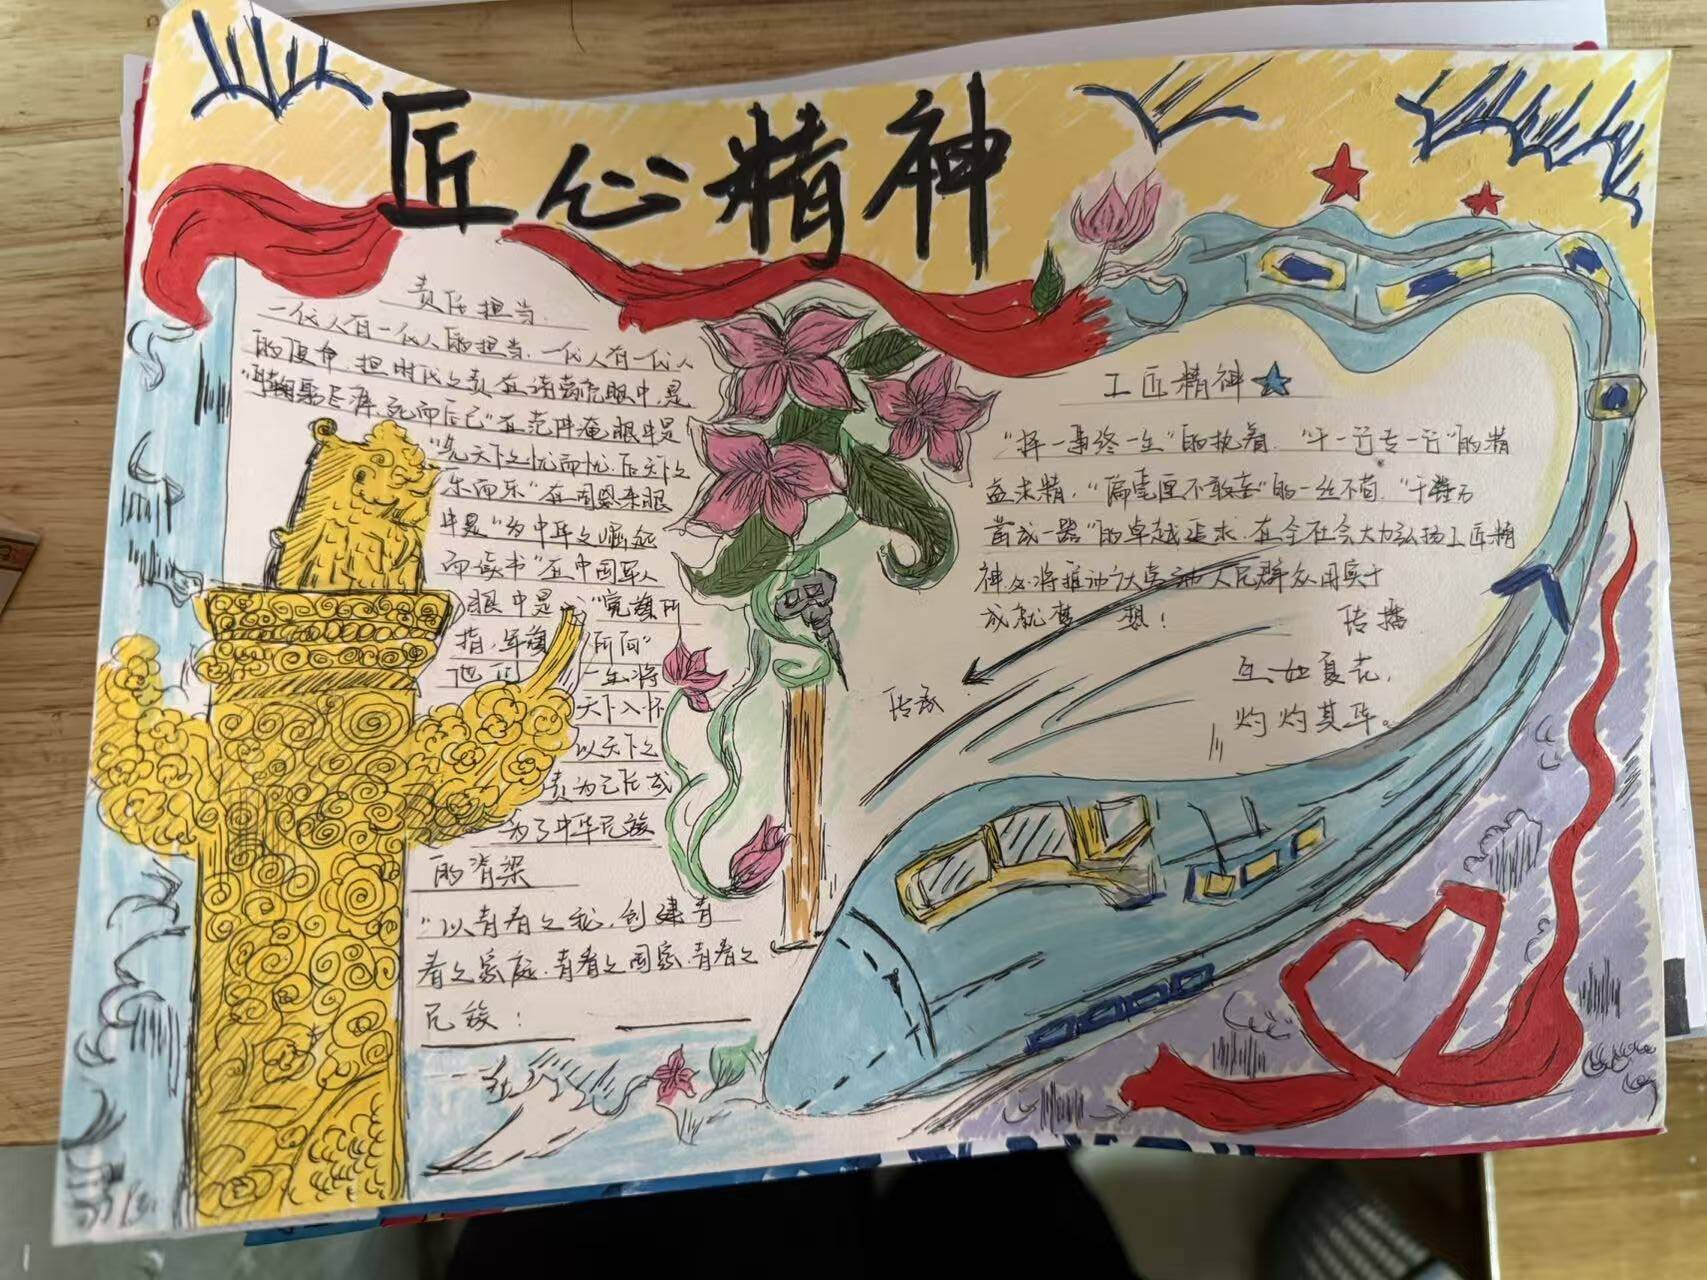 匠心精神
责任担当
一代人有一代人的担当、一代人有一代人
的使命、担时代之责在诸葛亮眼中,是
"鞠躬尽瘁,死而后已"在范仲淹眼中是
"先天下之忧而忧,后天下之
乐而乐"在周恩来眼
中是"为中华之崛起
而读书"在中国军人
眼中是"党旗所
指,军旗所向"
他们一生将
天下入怀
以天下之
责为己任成
为了中华民族
的脊梁
"以青春之我,创建青
春之家庭,青春之国家,青春之
民族!
工匠精神
"择一事终一生"的执着,"干一行专一行"的精
益求精,"偏毫厘不敢安"的一丝不苟,"千锤万
凿成一器"的卓越追求,在全社会大力弘扬工匠精
神必将推动广大劳动人民群众用实干
成就梦想!
传播
传承
亘如夏花,
灼灼其华。